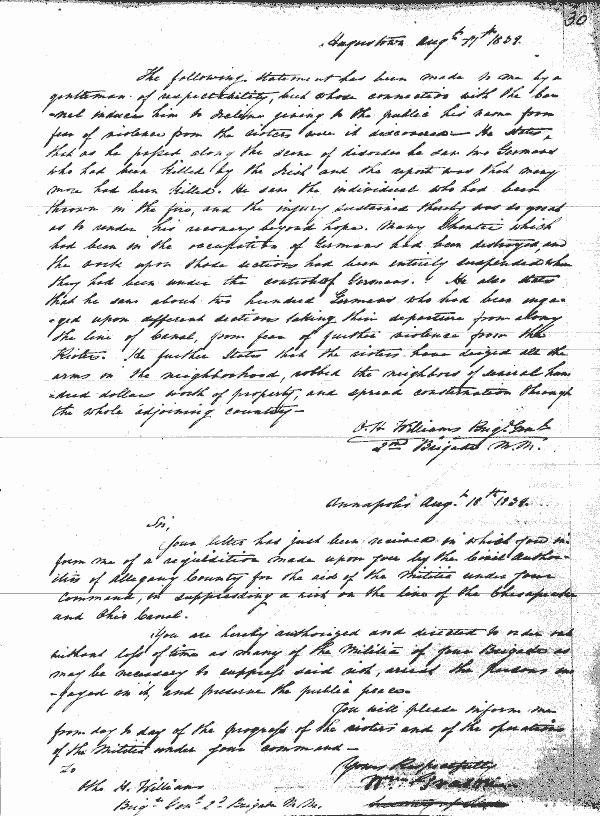 30
Hagerstown Augt 17th 1839.
The following statement has been made to me by a
gentleman of respectability, but whose connection with the Ca-
-nal induces him to decline giving to the public his name from
fear of violence from the rioters were it discovered. He states,
that as he passed along the scene of disorder he saw two Germans
who had been killed by the Irish and the report was that many
more had been killed. He saw the individual who had been
thrown in the fire, and the injury sustained thereby was so great
as to render his recovery beyond hope. Many Shantees which
had been in the occupation of Germans had been destroyed, and
the work upon those sections had been entirely suspended when
they had been under the control of Germans. He also states
that he saw about two hundred Germans who had been enga-
-ged upon different sections taking their departure from along
the line of Canal, from fear of further violence from the
Rioters. He further states that the rioters have seized all the
arms in the neighborhood, robbed the neighbors of several hun-
-dred dollars worth of property, and spread consternation through
the whole adjoining country—
O. H. Williams Brigr. Genl.
2nd Brigade M. M.
Annapolis Augt. 18th 1839.
Sir,
Your letter has just been received in which you in-
form me of a requisition made upon you by the Civil Autho-
ities of Allegany County for the aid of the Militia under your
command, in suppressing a riot on the line of the Chesapeake
and Ohio Canal.
You are hereby authorized and directed to order out
without loss of time as many of the Militia of your Brigade as
may be necessary to suppress said riot, arrest the persons en-
-gaged in it, and preserve the public peace.
You will please inform me
from day to day of the progress of the rioters and of the operations
of the Militia under your command—
To
Yours Respectfully
Wm Grason
Otho H. Williams
Brigr Genl 2d Brigade M. M.